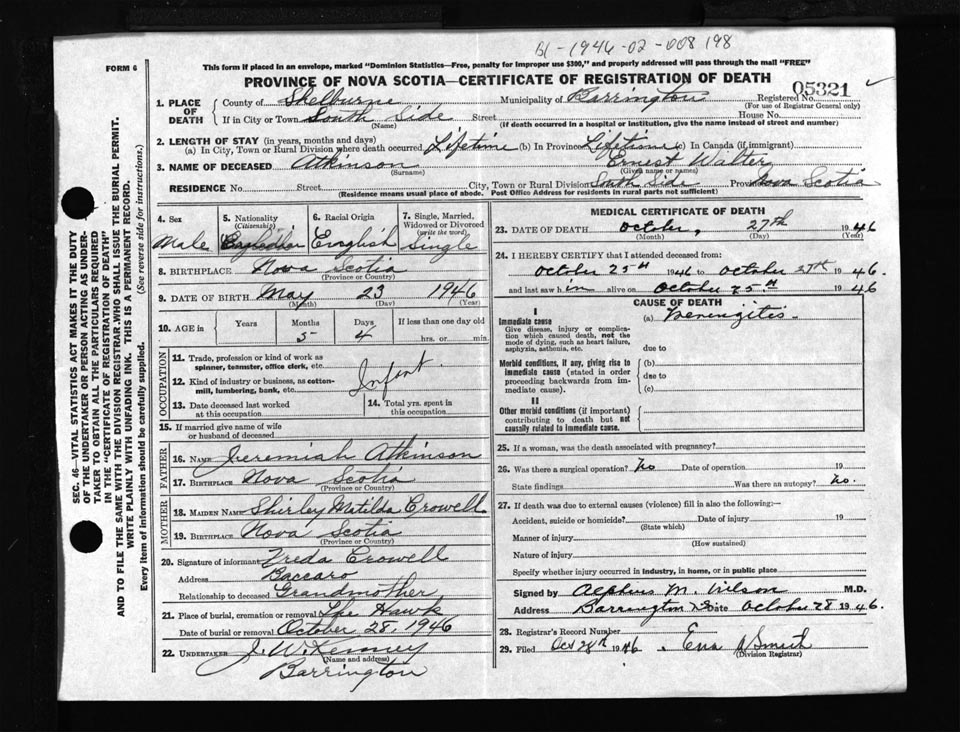 B1-1946-02-008198
This form if placed in an envelope, marked "Dominion Statistics—Free, penalty for improper use $300," and properly addressed will pass through the mail "FREE"
FORM 6
PROVINCE OF NOVA SCOTIA—CERTIFICATE OF REGISTRATION OF DEATH
05321
1. PLACE OF DEATH County of Shelburne Municipality of Barrington Registered No.
(For use of Registrar General only)
If in City or Town South Side Street House No.
(Name) (If death occurred in a hospital or institution, give the name instead of street and number)
2. LENGTH OF STAY (in years, months and days)
(a) In City, Town or Rural Division where death occurred Lifetime (b) In Province Lifetime (c) In Canada (if immigrant)
3. NAME OF DECEASED Atkinson Ernest Walter
(Surname) (Given name or names)
RESIDENCE No. Street City, Town or Rural Division South Side Province Nova Scotia
(Residence means usual place of abode. Post Office Address for residents in rural parts not sufficient)
4. Sex Male
5. Nationality (Citizenship)
6. Racial Origin English
7. Single, Married, Widowed or Divorced (write the word) Single
8. BIRTHPLACE Nova Scotia
(Province or Country)
9. DATE OF BIRTH May 23 1946
(Month) (Day) (Year)
10. AGE in Years Months Days If less than one day old
5 4 hrs. or min.
OCCUPATION
11. Trade, profession or kind of work as spinner, teamster, office clerk, etc.
Infant
12. Kind of industry or business, as cotton-mill, lumbering, bank, etc.
13. Date deceased last worked at this occupation
14. Total yrs. spent in this occupation
15. If married give name of wife or husband of deceased
FATHER
16. NAME Jeremiah Atkinson
17. BIRTHPLACE Nova Scotia
(Province or Country)
MOTHER
18. MAIDEN NAME Shirley Matilda Crowell
19. BIRTHPLACE Nova Scotia
(Province or Country)
20. Signature of informant Vreda Crowell
Address Baccaro
Relationship to deceased Grandmother
21. Place of burial, cremation or removal The Hawk
Date of burial or removal October 28, 1946
22. UNDERTAKER J. W. Kenney
(Name and address)
Barrington
MEDICAL CERTIFICATE OF DEATH
23. DATE OF DEATH October, 27th 1946
(Month) (Day) (Year)
24. I HEREBY CERTIFY that I attended deceased from:
October 25th 1946 to October 27th 1946.
and last saw him alive on October 25th 1946
CAUSE OF DEATH
I
Immediate cause (a) Meningitis.
Give disease, injury or complication which caused death, not the mode of dying, such as heart failure, asphyxia, asthenia, etc.
due to
Morbid conditions, if any, giving rise to immediate cause (stated in order proceeding backwards from immediate cause). (b)
due to
(c)
II
Other morbid conditions (if important) contributing to death but not causally related to immediate cause.
25. If a woman, was the death associated with pregnancy?
26. Was there a surgical operation? No Date of operation 19
State findings Was there an autopsy? No.
27. If death was due to external causes (violence) fill in also the following:—
Accident, suicide or homicide? Date of injury 19
(State which)
Manner of injury
(How sustained)
Nature of injury
Specify whether injury occurred in industry, in home, or in public place
Signed by Alpheus M. Wilson M.D.
Address Barrington NS Date October 28 1946.
28. Registrar's Record Number
29. Filed Oct 28th 1946. Smith
(Division Registrar)
SEC. 46—VITAL STATISTICS ACT MAKES IT THE DUTY
OF THE UNDERTAKER OR PERSON ACTING AS UNDER-
TAKER TO OBTAIN ALL THE PARTICULARS REQUIRED
IN THE "CERTIFICATE OF REGISTRATION OF DEATH"
AND TO FILE THE SAME WITH THE DIVISION REGISTRAR WHO SHALL ISSUE THE BURIAL PERMIT.
WRITE PLAINLY WITH UNFADING INK. THIS IS A PERMANENT RECORD.
Every item of information should be carefully supplied. (See reverse side for instructions.)